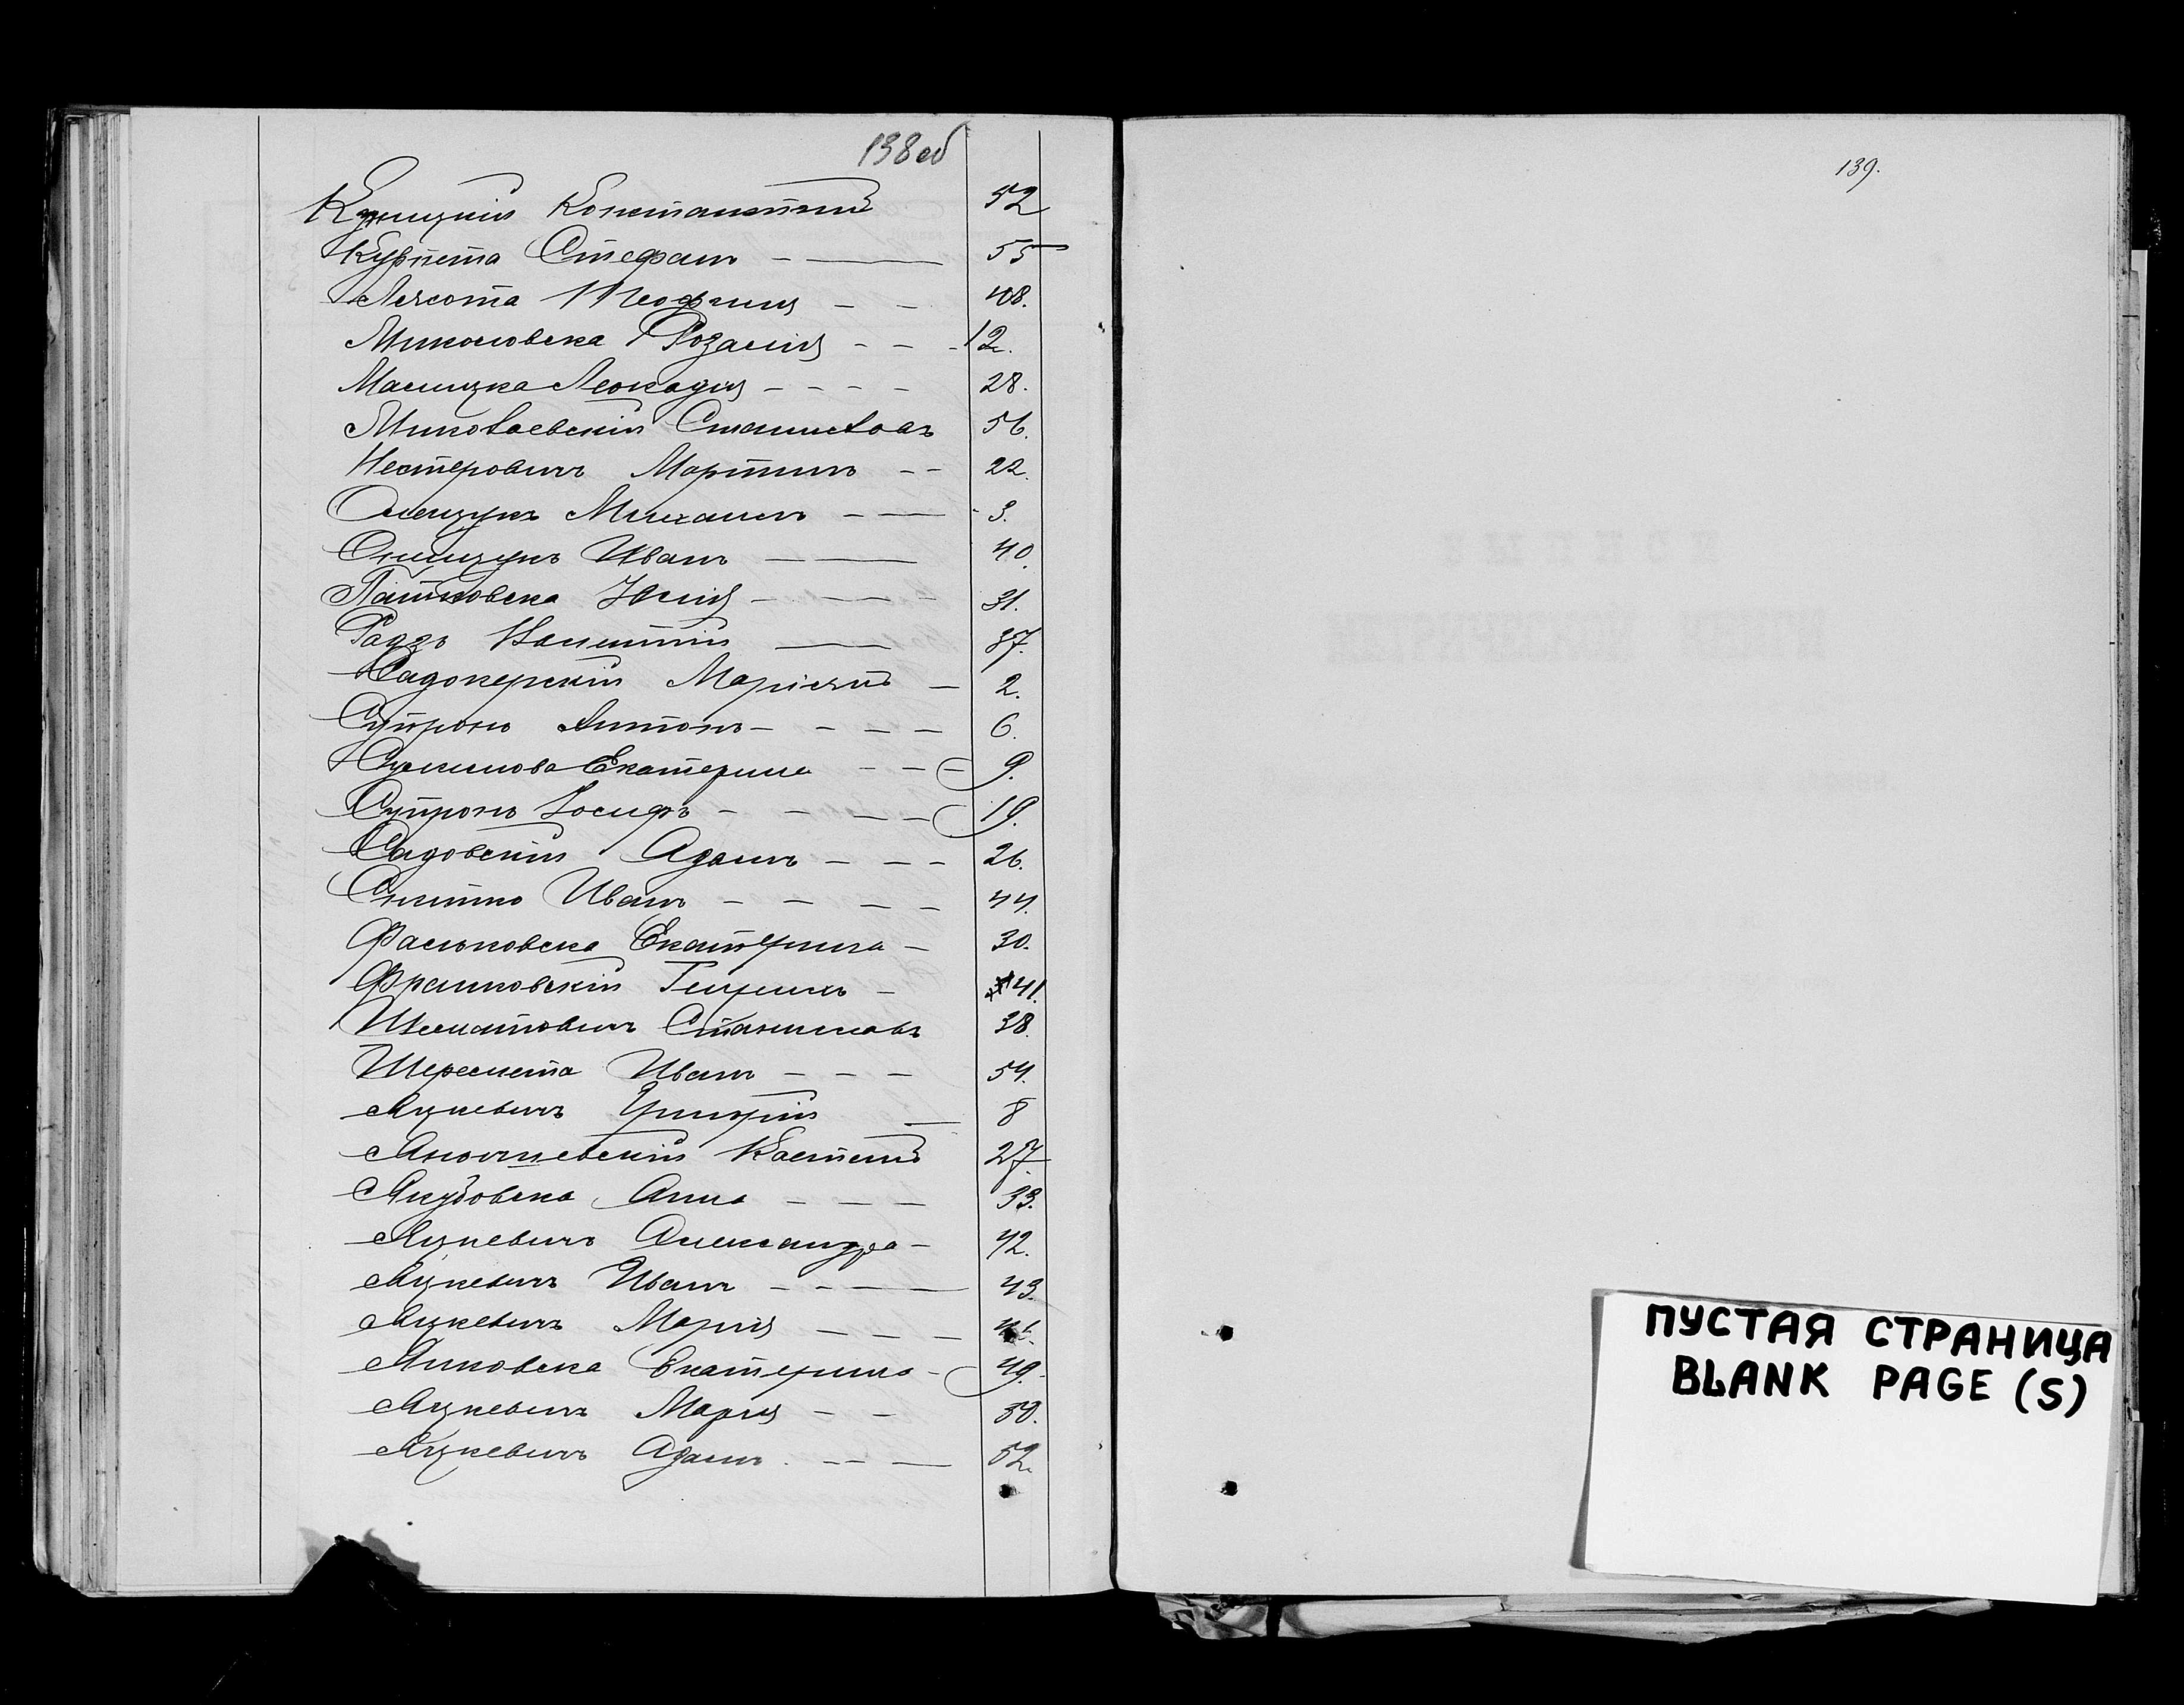 138 об
Куницкій Константинъ 52
Курпета Стефанъ 55
Лехота Теофилія 48.
Микосовска Розалія 12.
Малицка Леокадія 28.
Миколаевскій Станиславъ 56.
Нестеровичъ Мартинъ 22.
Олещукъ Михаилъ 3.
Онищукъ Иванъ 40.
Патковска Юлія 31.
Радзъ Валентій 37.
Садокерскій Маріянъ 2.
Супронъ Антонъ 6.
Екатерина 9.
Супронъ Іосифъ 19.
Садовскій Адамъ 26.
Снитко Иванъ 44.
Фальковска Екатерина 30.
Франковскій Генрихъ 41.
Шематовичъ Станиславъ 38.
Шереметa Иванъ 54.
Яцкевичъ Григорій 8
27
Якубовска Анна 33.
Яцкевичъ Александра 42.
Яцкевичъ Иванъ 43.
Яцкевичъ Марія
Яниковска Екатерина 49.
Яцкевичъ Марія 50.
Яцкевичъ Адамъ 52.
139.
ПУСТАЯ СТРАНИЦА
BLANK PAGE (S)